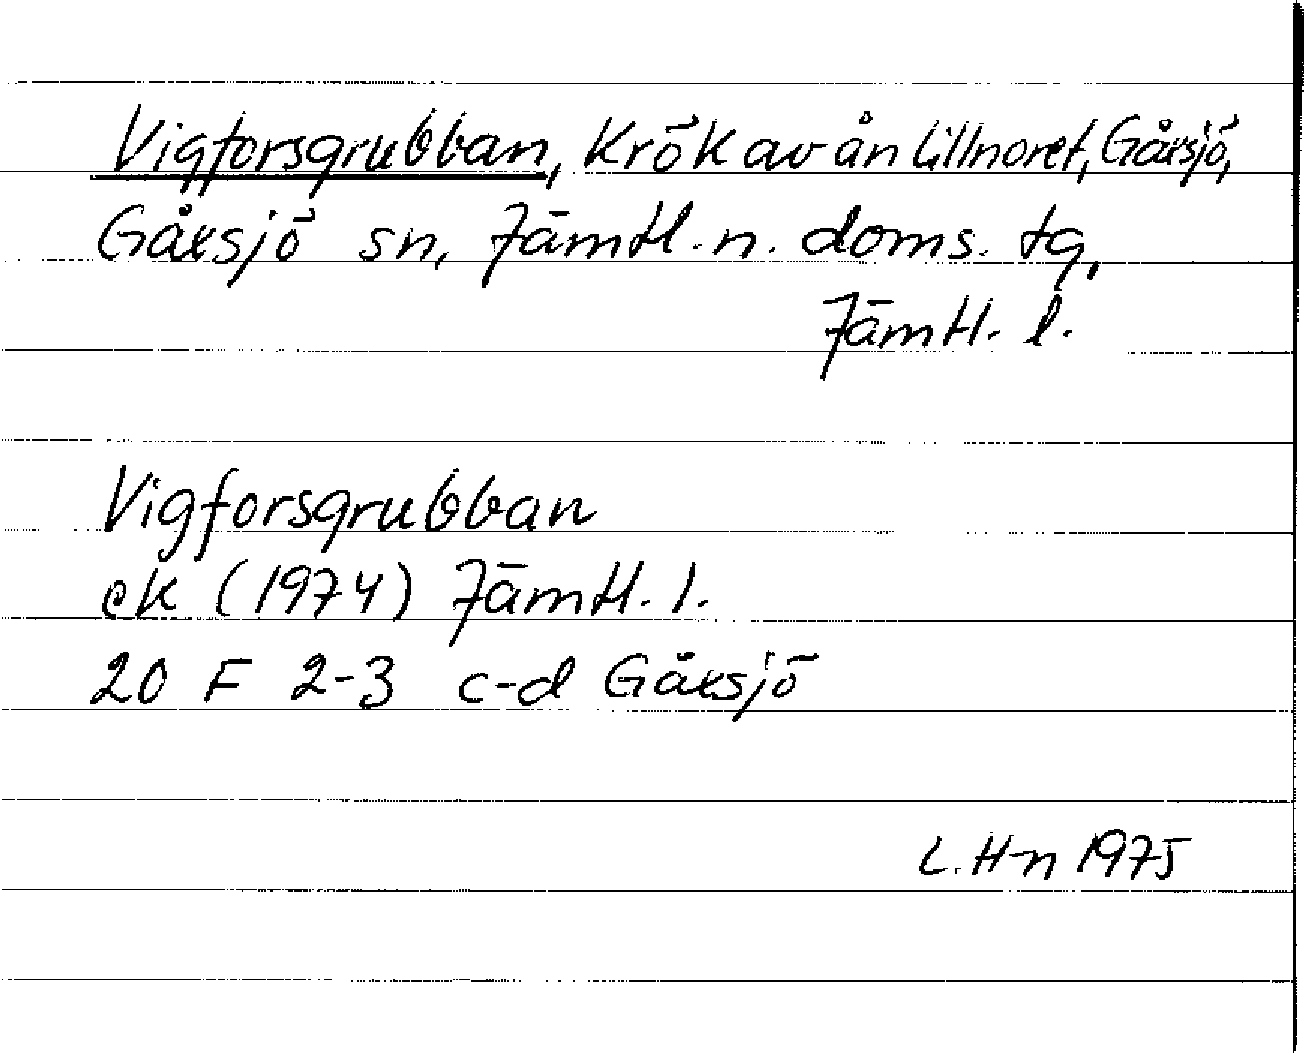 Vigforsgrubban, Krök av ån Lillnoret, Gåxsjö,
Gåxsjö sn, Jämtl. n. doms. tg,
Jämtl. l.
Vigforsgrubban
ek (1974) Jämtl. l.
20 F 2-3 c-d Gåxsjö
L. H-n 1975